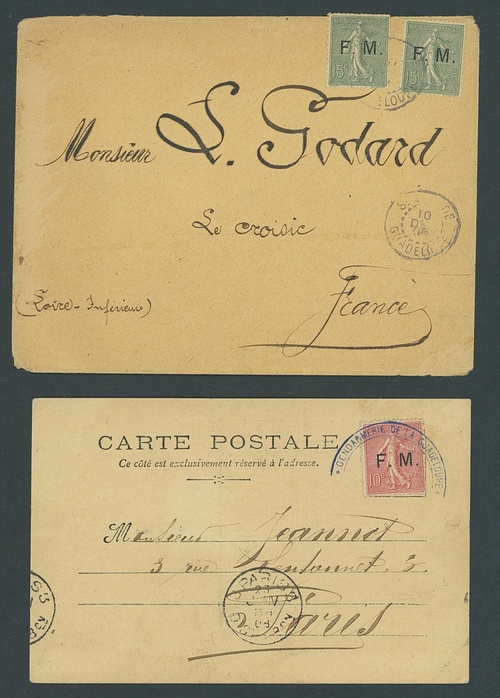 F. M. F. M.
15c 15c
Monsieur L. Godard
Le Croisic
10
GUADELOUPE
(Loire-Inférieure)
France
CARTE POSTALE
Ce côté est exclusivement réservé à l'adresse.
GENDARMERIE DE LA GUADELOUPE
F. M.
10
Monsieur Jeannot
3 rue
PARIS
Paris